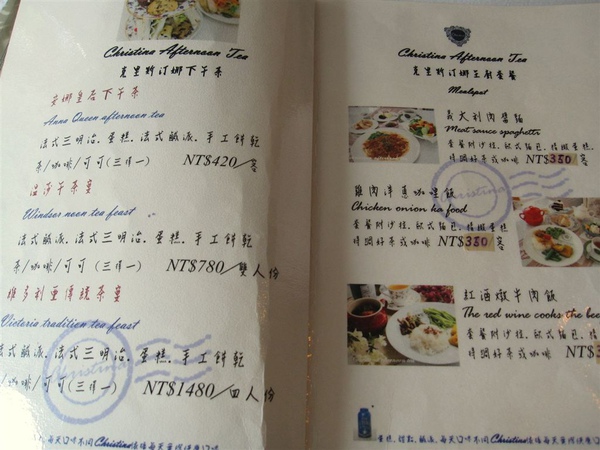 Christina Afternoon Tea
克里斯汀娜下午茶
安娜皇后下午茶
Anna Queen afternoon tea
法式三明治. 蛋糕. 法式鹹派. 手工餅乾
茶/咖啡/可可(三擇一) NT$420/客
溫莎午茶宴
Windsor noon tea feast
法式鹹派. 法式三明治. 蛋糕. 手工餅乾
茶/咖啡/可可(三擇一) NT$780/雙人份
維多利亞傳統茶宴
Victoria tradition tea feast
法式鹹派. 法式三明治. 蛋糕. 手工餅乾
/咖啡/可可(三擇一) NT$1480/四人份
Christina Afternoon Tea
克里斯汀娜主廚套餐
Mealspat
義大利肉醬麵
Meat sauce spaghetti
套餐附沙拉. 歐式麵包. 精緻蛋糕.
精選好茶或咖啡 NT$350/客
雞肉洋蔥咖哩飯
Chicken onion ka food
套餐附沙拉. 歐式麵包. 精緻蛋糕.
精選好茶或咖啡 NT$350/客
紅酒燉牛肉飯
The red wine cooks the bee
套餐附沙拉. 歐式麵包. 精緻
精選好茶或咖啡 NT$3